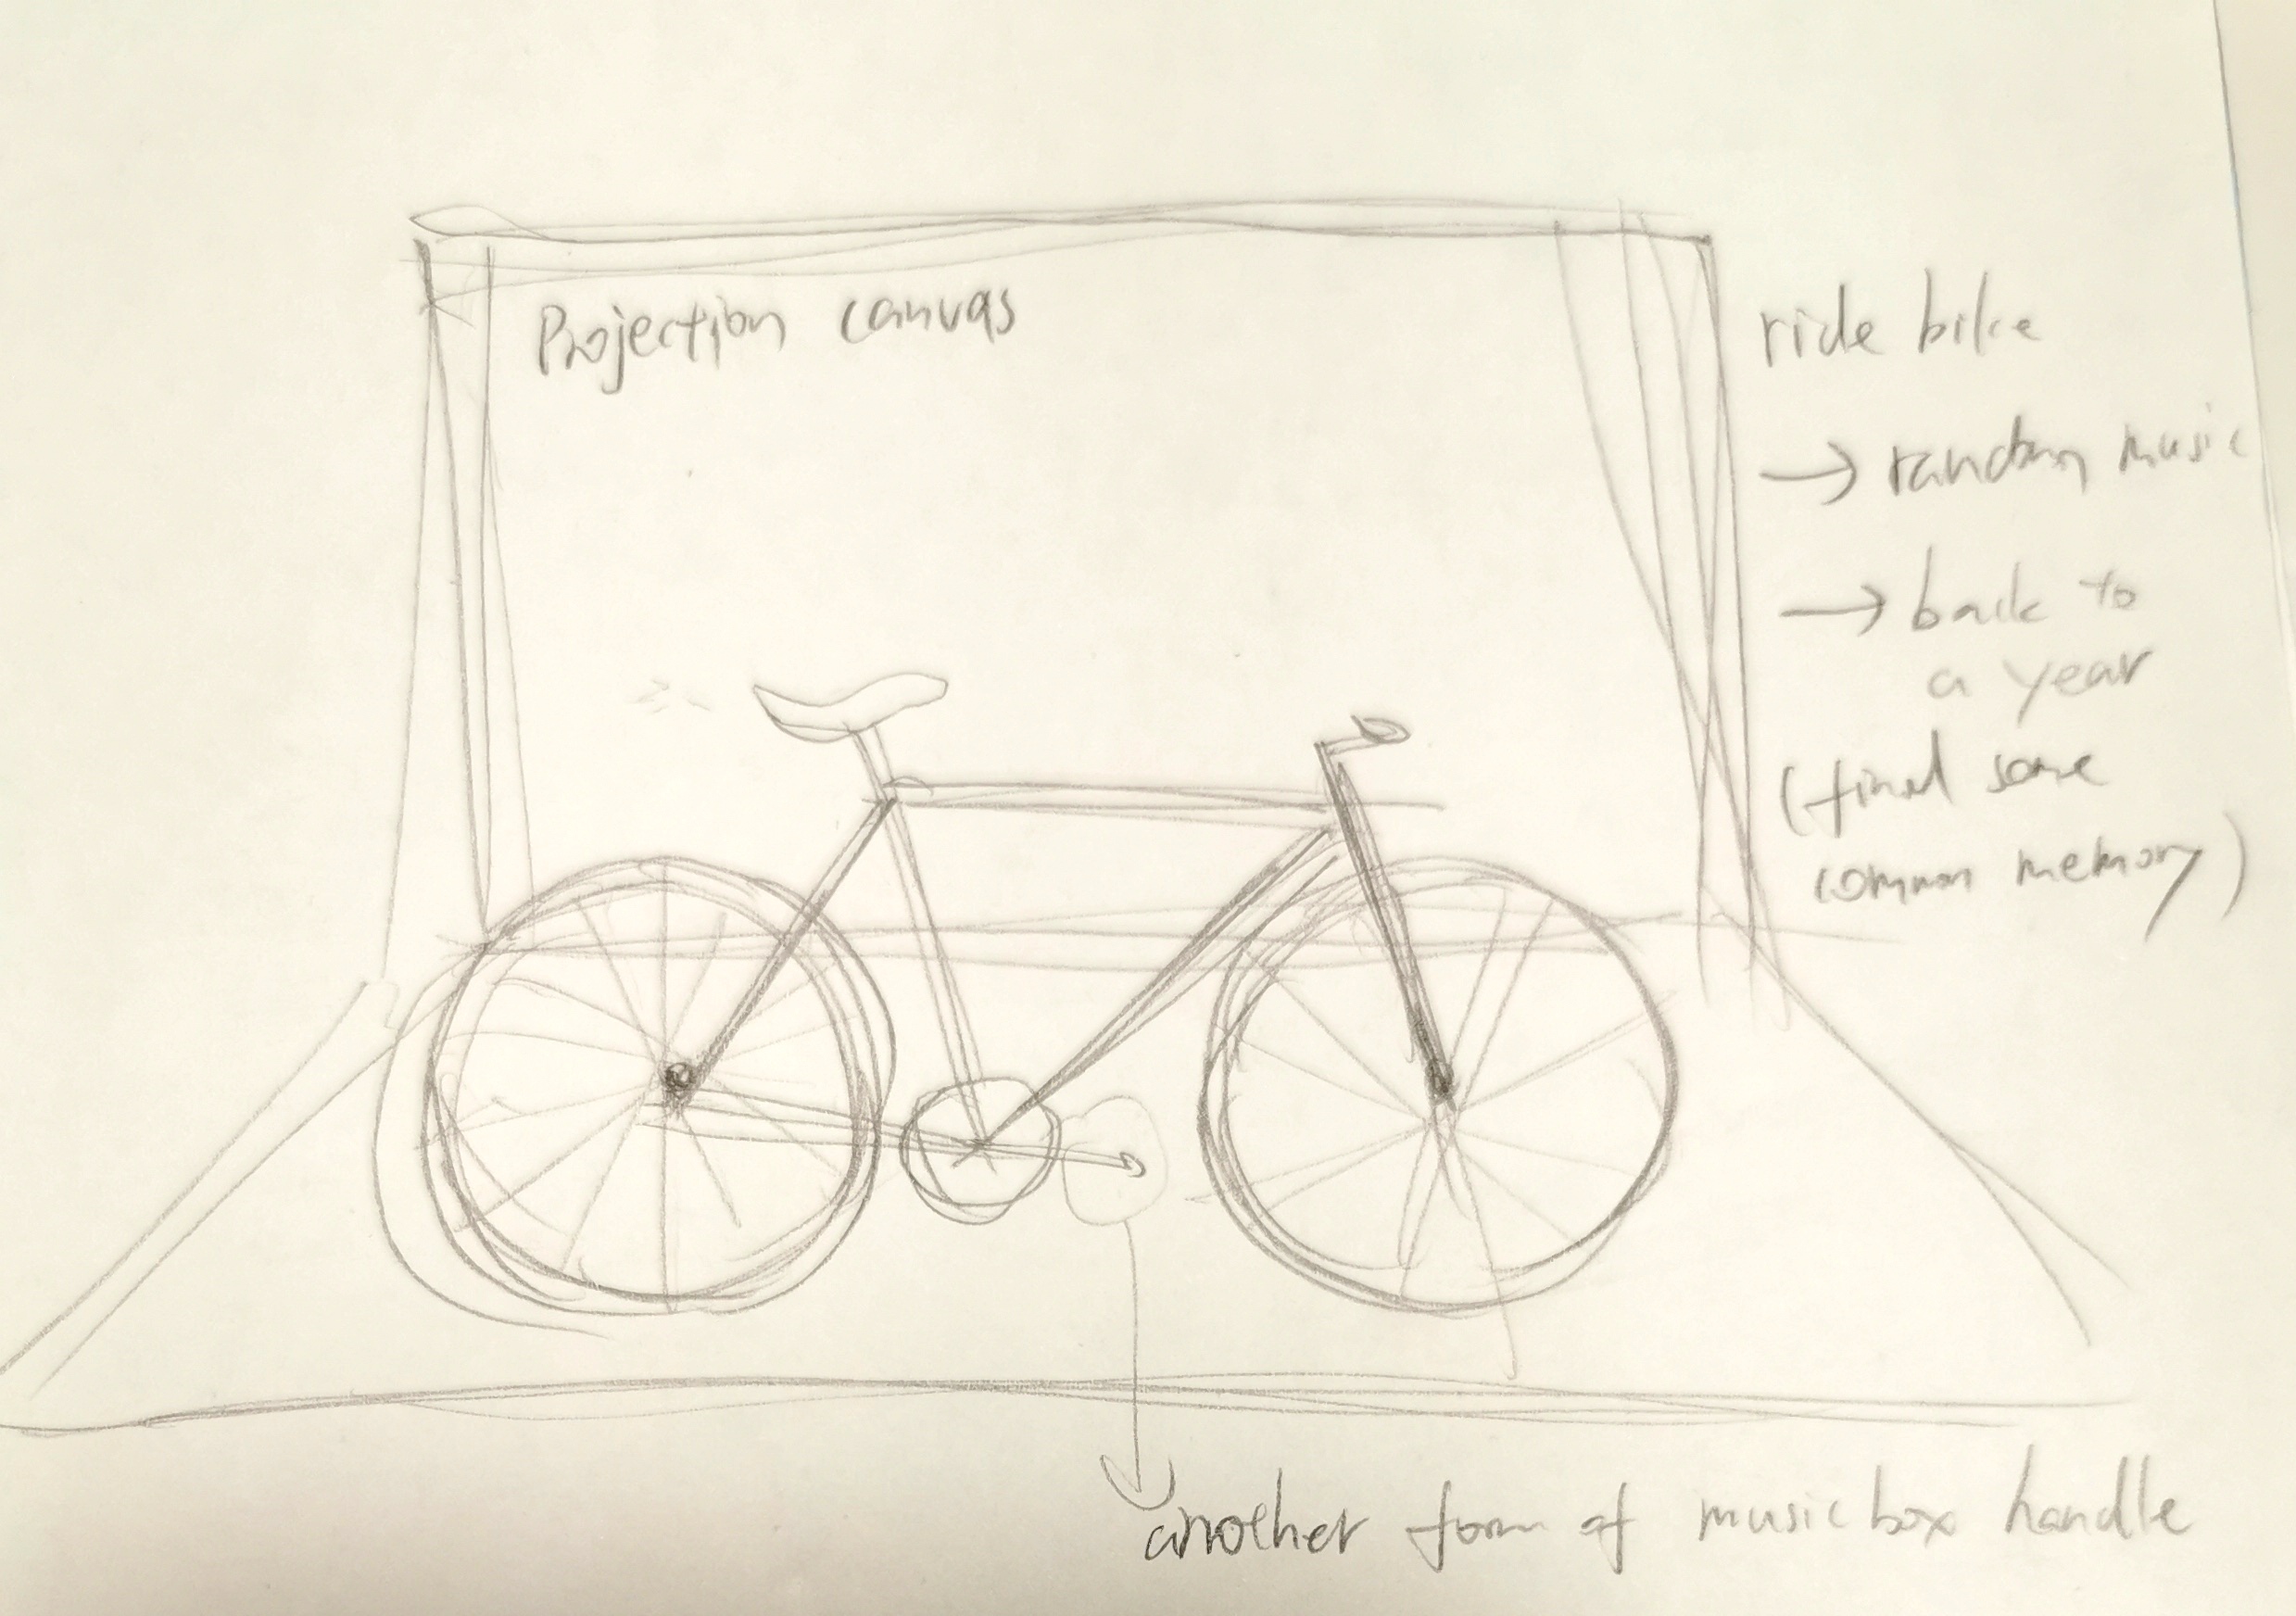 Projection canvas
ride bike
→ random music
→ back to
a year
(final some
common memory)
another form of musicbox handle